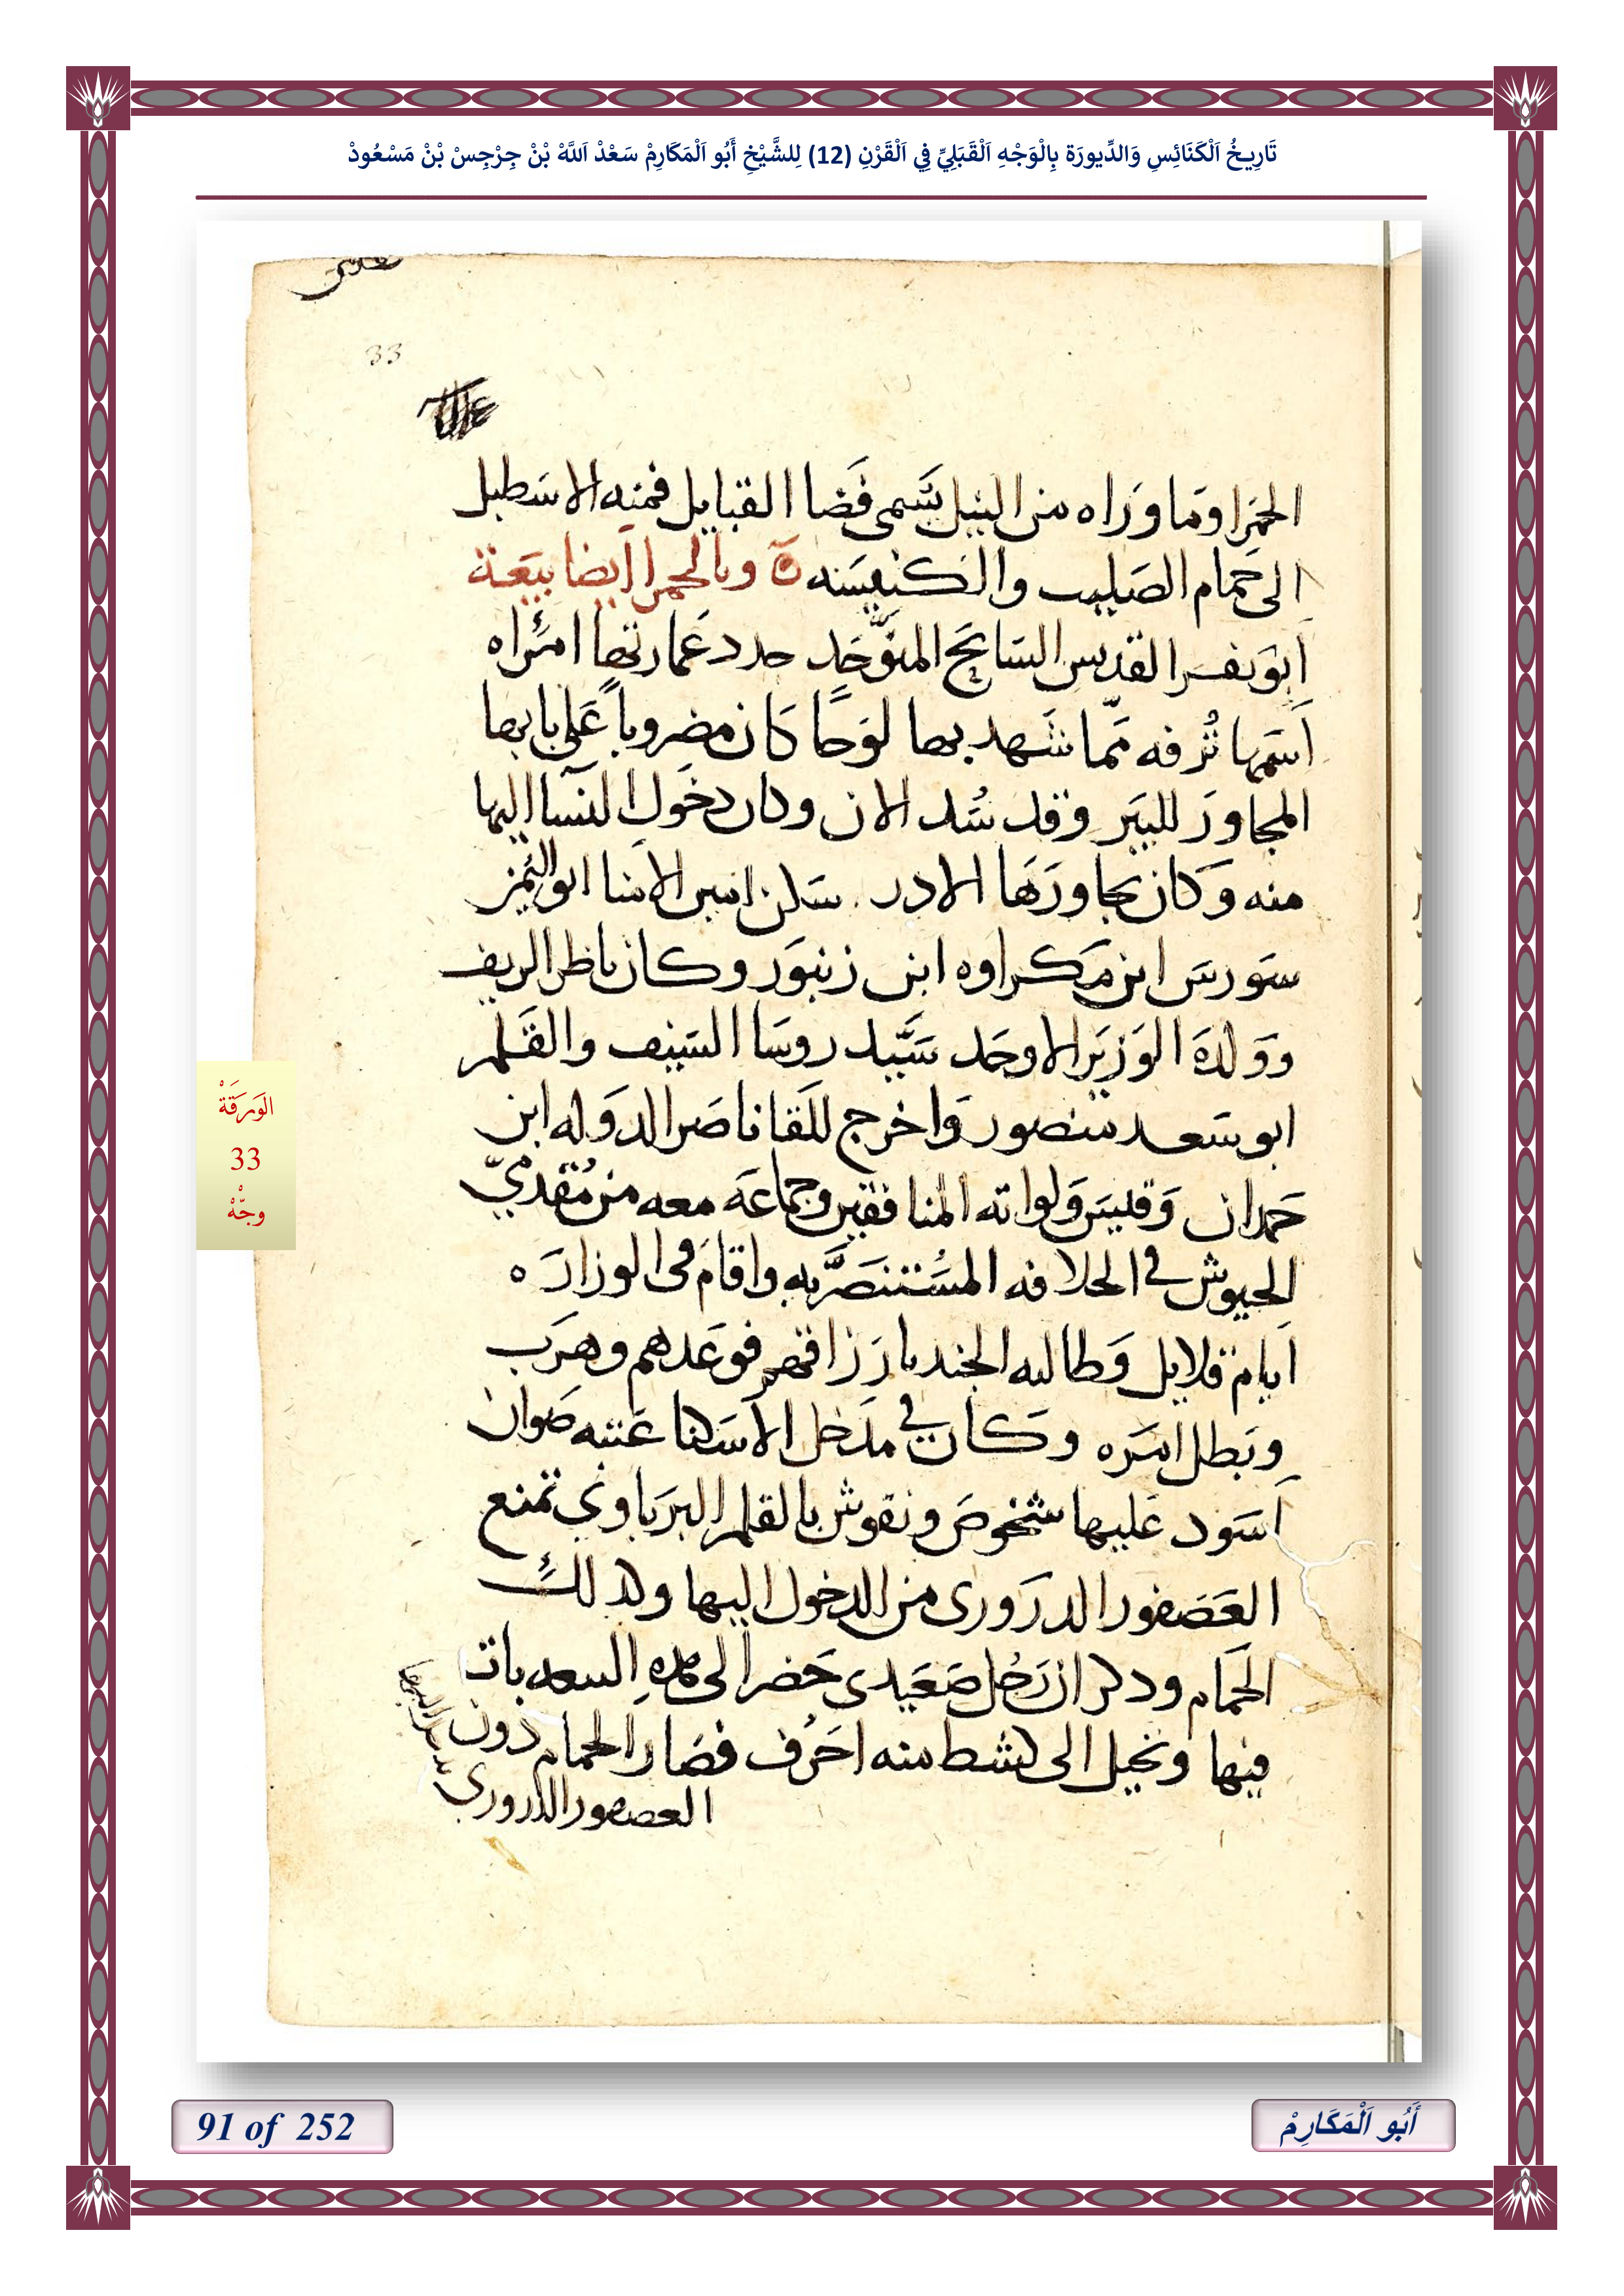 تَارِيخُ اَلْكَنَائِسِ وَالدِّيورَة بِالْوَجْهِ اَلْقَبَلِيِّ فِي اَلْقَرْنِ (12) لِلشَّيْخِ أَبُو اَلْمَكَارِمْ سَعْدْ اَللَّهْ بْنْ جِرْجِسْ بْنْ مَسْعُودْ
33
الحمرا وما وراه من النيل يسمى فضا القبايل فمنه الاسطبل
الى حمام الصليب والكنيسه ه وبالحمرا ايضا بيعة
ابو نفر القديس السايح المتوحد جدد عمارتها امراه
اسمها تُرفه ممّا شهد بها لوحًا كان مضروباً على بابها
المجاور للبير وقد سُد الان وكان دخول النسا اليها
منه وكان يجاورها الادر سكن امين الامنا ابو اليمن
سورس ابن مكراوه ابن زنبور وكان ناظر الريف
وولده الوزير الاوحد سيّد روسا السيف والقلم
ابو سعد منصور واخرج للقا ناصر الدوله ابن
حمدان وقيس ولواته المنافقين وجماعة معه من مُقدميّ
الجيوش في الخلافه المستنصريّه واقام في الوزاره
ايام قلايل وطالبه الجند بارزاقهم فوعدهم وهرب
وبطل امره وكان في مدخل الاسكنا عتبه صوان
اسود عليها شخوص ونقوش بالقلم البرباوي تمنع
العصفور الدروري من الدخول اليها وكذلك
الحمام وذكر ان رجل صعيدي حضر الى هذه البيعه بات
فيها وتحيل الى كشط منه احرُف فصار الحمام دون
العصفور الدروري
الوَرَقَةْ
33
وجّهْ
91 of 252
أَبُو اَلْمَكَارِمْ